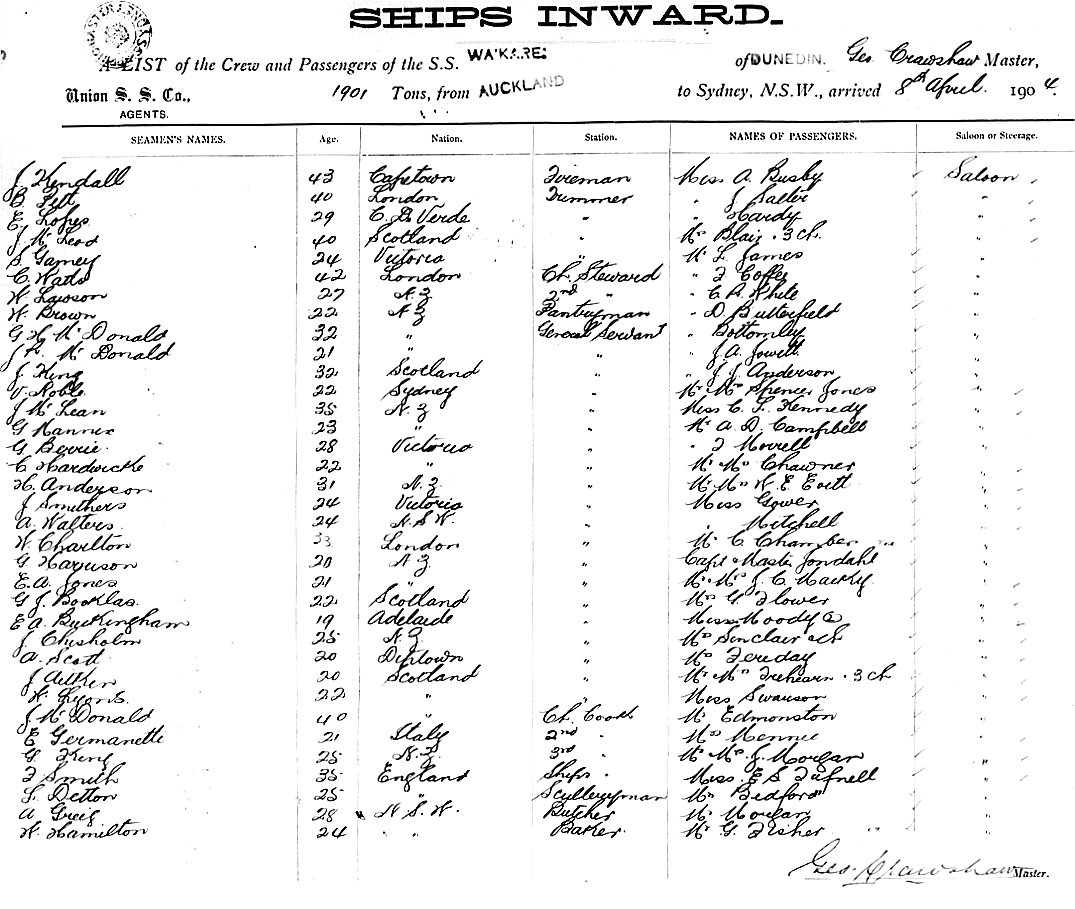 SHIPS INWARD.
A LIST of the Crew and Passengers of the S.S. WAKARE: of DUNEDIN. Geo Crawshaw Master,
Union S. S. Co., 1901 Tons, from AUCKLAND to Sydney, N.S.W., arrived 8th April. 1904.
AGENTS.
SEAMEN'S NAMES. Age. Nation. Station. NAMES OF PASSENGERS. Saloon or Steerage.
J Kendall 43 Capetown Fireman Miss A. Busby Saloon
B. Pitt 40 London Trimmer " J Salter "
E Lopes 29 C. D Verde " " Hardy "
J McLeod 40 Scotland " Mrs Blair . 3 ch. "
24 Victoria " Mr L James "
C. Watts 42 London Ch. Steward " F Coffey "
W. Lawson 27 N.Z 2nd " " C R White "
W. Brown 22 N.Z Pantryman " D. Butterfield "
G H McDonald 32 " General Servant " Bottomley "
McDonald 21 " " " J A. Jowett "
J. King 32 Scotland " " J. J Anderson "
V. Roble 22 Sydney " Mr Mrs Spencer Jones "
J McLean 35 N.Z " Miss C. L. Kennedy "
G Mannix 23 " " Mr A. D. Campbell "
G Berrie. 28 Victoria " " J Morrell "
C Hardwicke 22 " " Mr Mrs Chawner "
H. Anderson 31 N.Z " Mr Mrs W. E. Evitt "
J Smithers 24 Victoria " Miss Gower "
A. Walters 24 N.S.W. " " Mitchell "
W Charlton 33 London " Mr C Chamber "
G 20 N.Z " Capt & Master Jondahl "
E.A. Jones 21 " " Mr Mrs J. C. Macky "
G J. Booklas 22 Scotland " Mrs G Flower "
E A. Buckingham 19 Adelaide " Miss Moody "
J Chisholm 25 N.Z " Mrs Sinclair & ch "
A. Scott 20 " Mrs Fereday "
J Aitken 20 Scotland " Mr Mrs Trehearn . 3 ch "
W. Lyons. 22 " " Miss Swanson "
J McDonald 40 " Ch. Cook Mr Edmonston "
E Germanette 21 Italy 2nd " Mrs Mennie "
G King 25 N.Z 3rd " Mr Mrs J. Morgan "
F Smith 35 England Ships " Miss E S Tufnell "
L. Detton 25 " Sculleryman Mrs Bedford "
A Greig 28 N.S.W. Butcher Mr Morgan "
W. Hamilton 24 " Baker. Mr G. Fisher " "
Geo. Crawshaw Master.